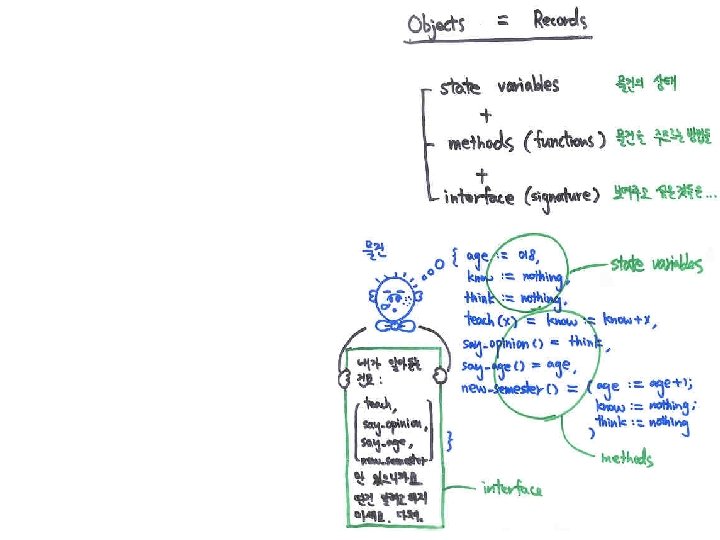 Objects = Records
state variables 물건의 상태
+
methods (functions) 물건을 주무르는 방법들
+
interface (signature) 보여주고 싶은것들은...
물건
{ age := 018,
know := nothing,
think := nothing,
state variables
teach(x) = know := know+x,
say-opinion() = think,
say-age() = age,
new-semester() = ( age := age+1;
know := nothing;
think := nothing
)
}
methods
내가 알아듣는
건요:
teach,
say-opinion,
say-age,
new-semester
만 있으니까요
딴건 말려고하지
마세요. 다쳐.
interface